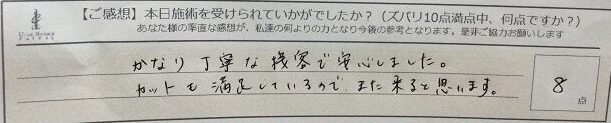 【ご感想】本日施術を受けられていかがでしたか？（ズバリ10点満点中、何点ですか？）
あなた様の率直な感想が、私達の何よりの力となり今後の参考となります。是非ご協力お願いします
かなり丁寧な接客で安心しました。
カットも満足しているので、また来ると思います。
8
点